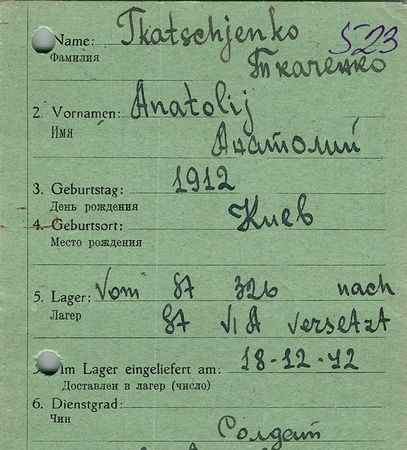 Name: Tkatschjenko 523
Фамилия Ткаченко
2. Vornamen: Anatolij
Имя Анатолий
3. Geburtstag: 1912
День рождения
4. Geburtsort: Киев
Место рождения
5. Lager: Vom ST 326 nach
Лагер ST VI A versetzt
Im Lager eingeliefert am: 18-12-42
Доставлен в лагер (число)
6. Dienstgrad:
Чин Солдат